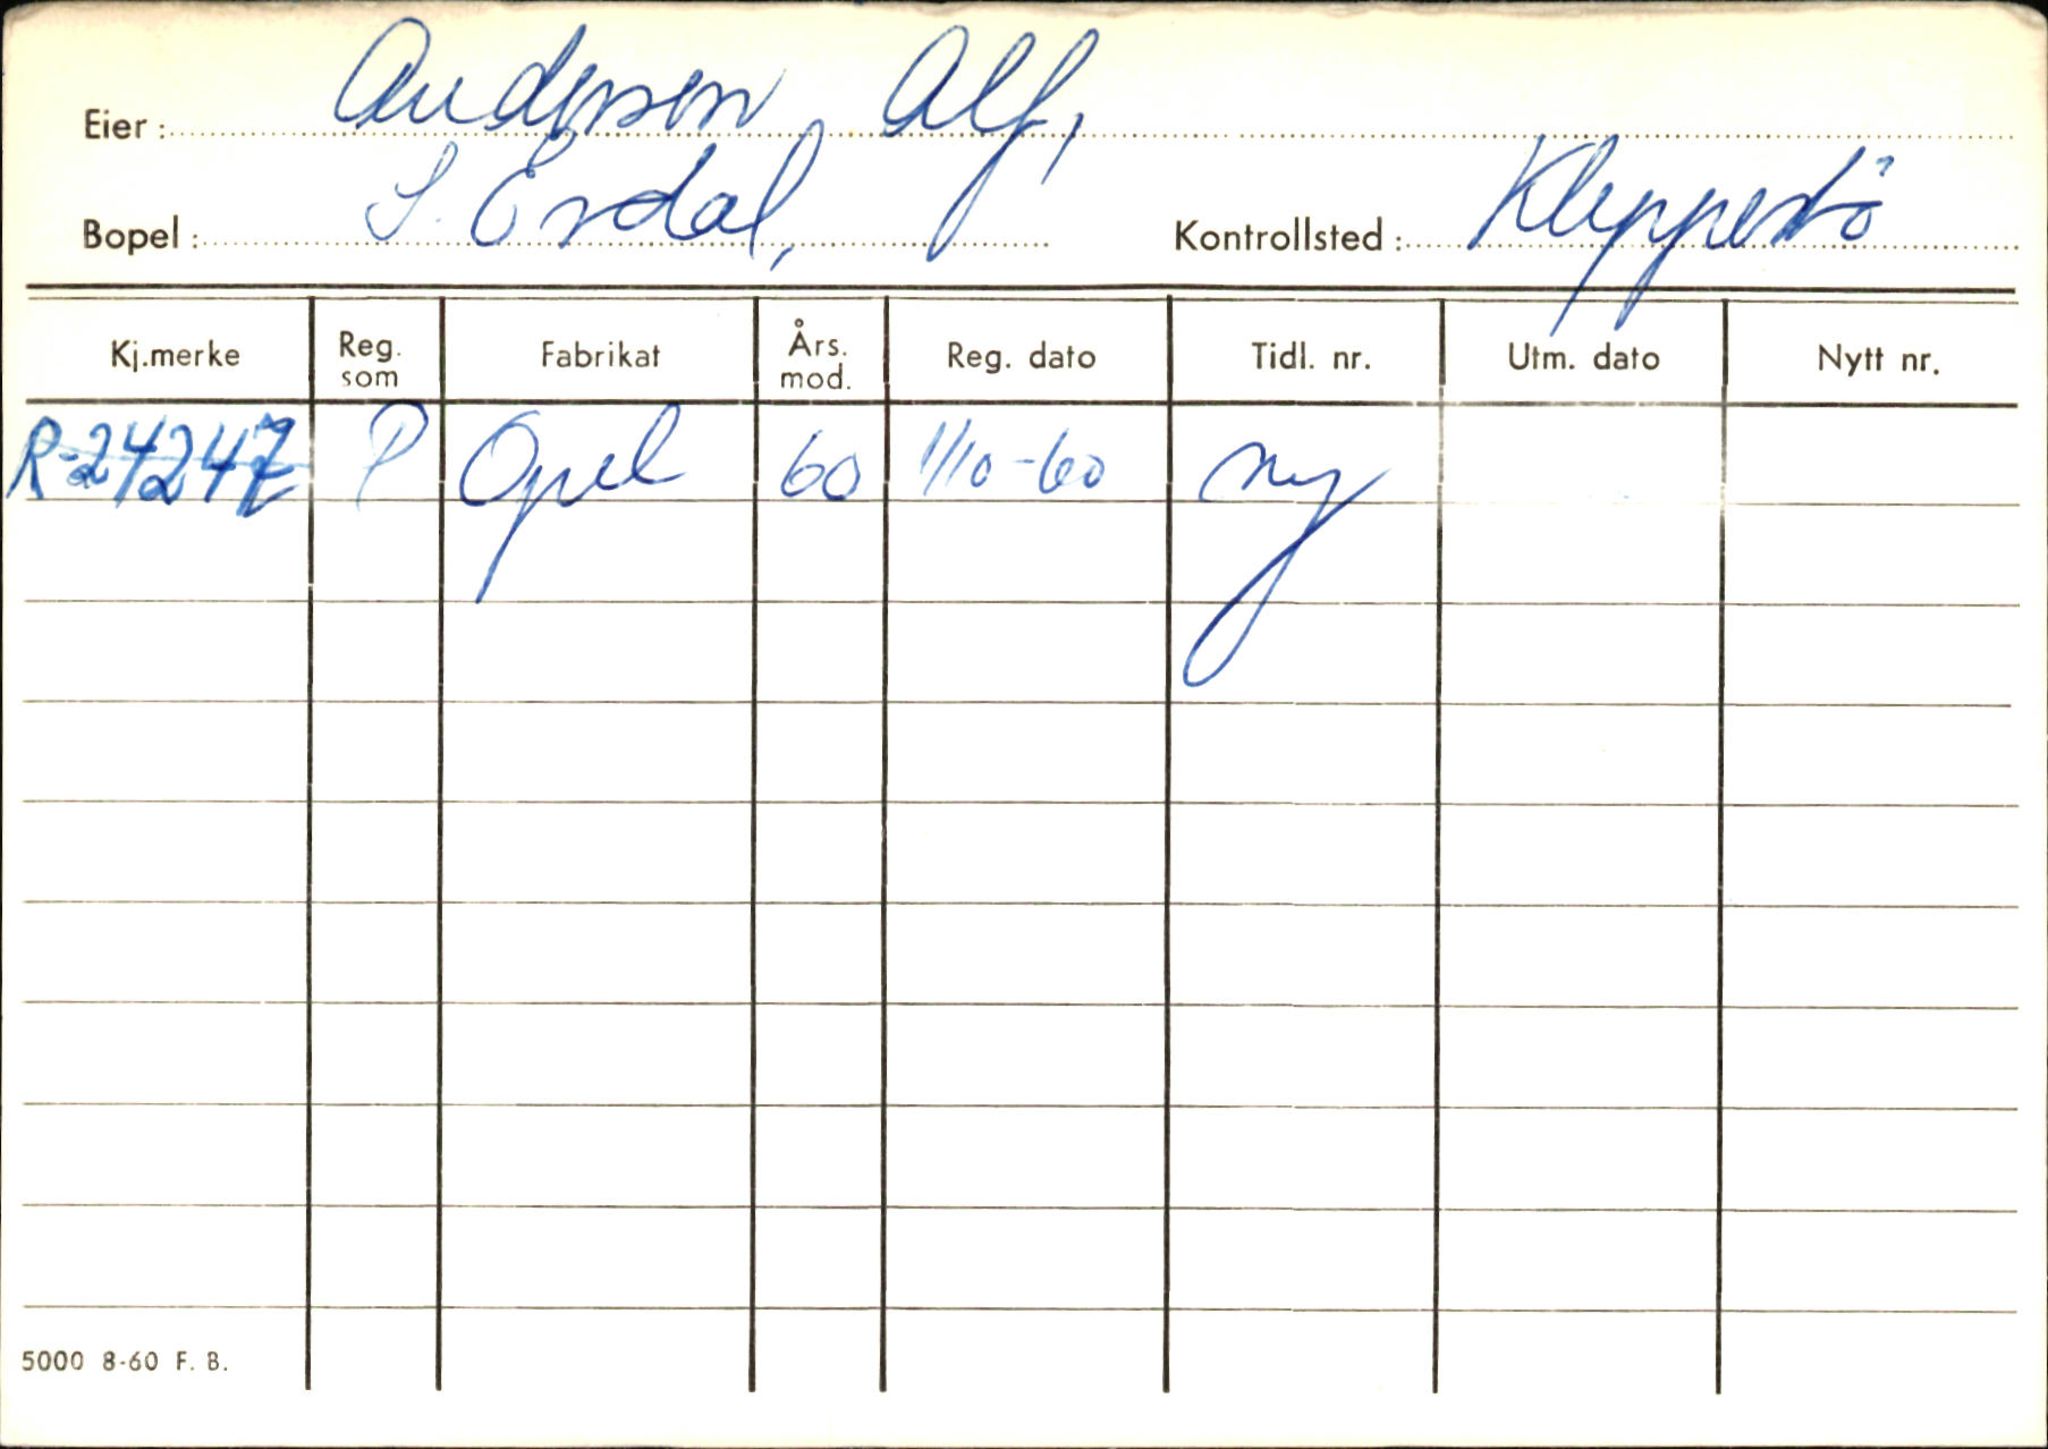 Eier: Andersen, Alf,
Bopel: S. Erdal, Kontrollsted: Kleppestö
Kj.merke Reg. som Fabrikat Års. mod. Reg. dato Tidl. nr. Utm. dato Nytt nr.
R-24247 P Opel 60 1/10-60 ny
5000 8-60 F. B.